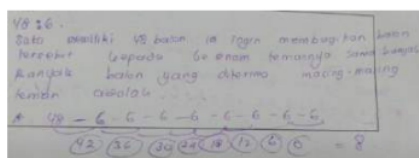 48:6.
Satu memiliki 48 balon ia ingin membagikan balon
tersebut kepada ke enam temannya sama banyak
banyak balon yang diterima masing-masing
teman adalah
48 - 6 - 6 - 6 - 6 - 6 - 6 - 6 - 6
42 36 30 24 18 12 6 0 = 8